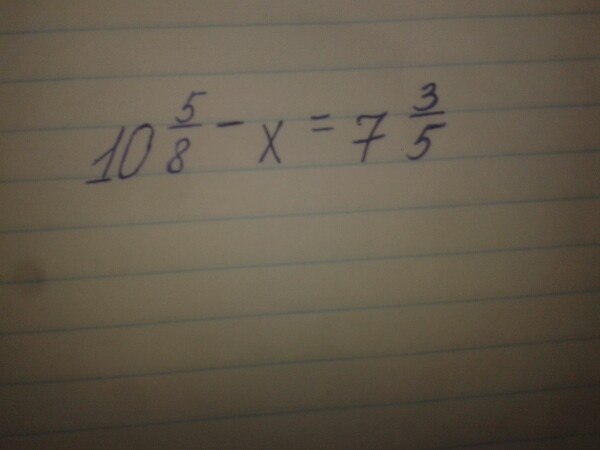 10 5/8 - x = 7 3/5